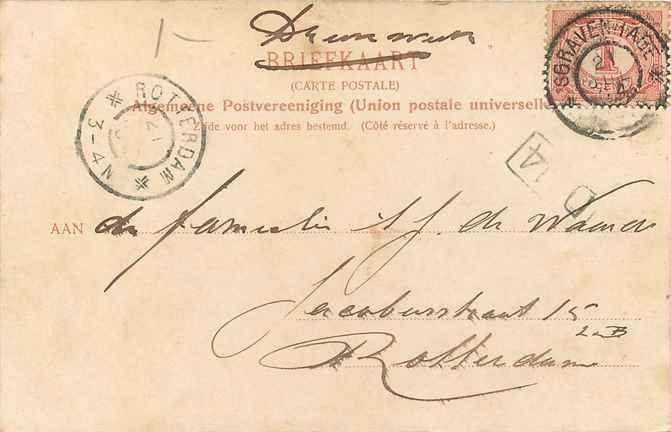 Drukwerk
BRIEFKAART
(CARTE POSTALE)
Algemeene Postvereeniging (Union postale universelle)
Zijde voor het adres bestemd. (Côté réservé à l'adresse.)
'SGRAVENHAGE
1
ROTTERDAM
3-4N
D 14
AAN de familie de
Jacobusstraat 15
Rotterdam